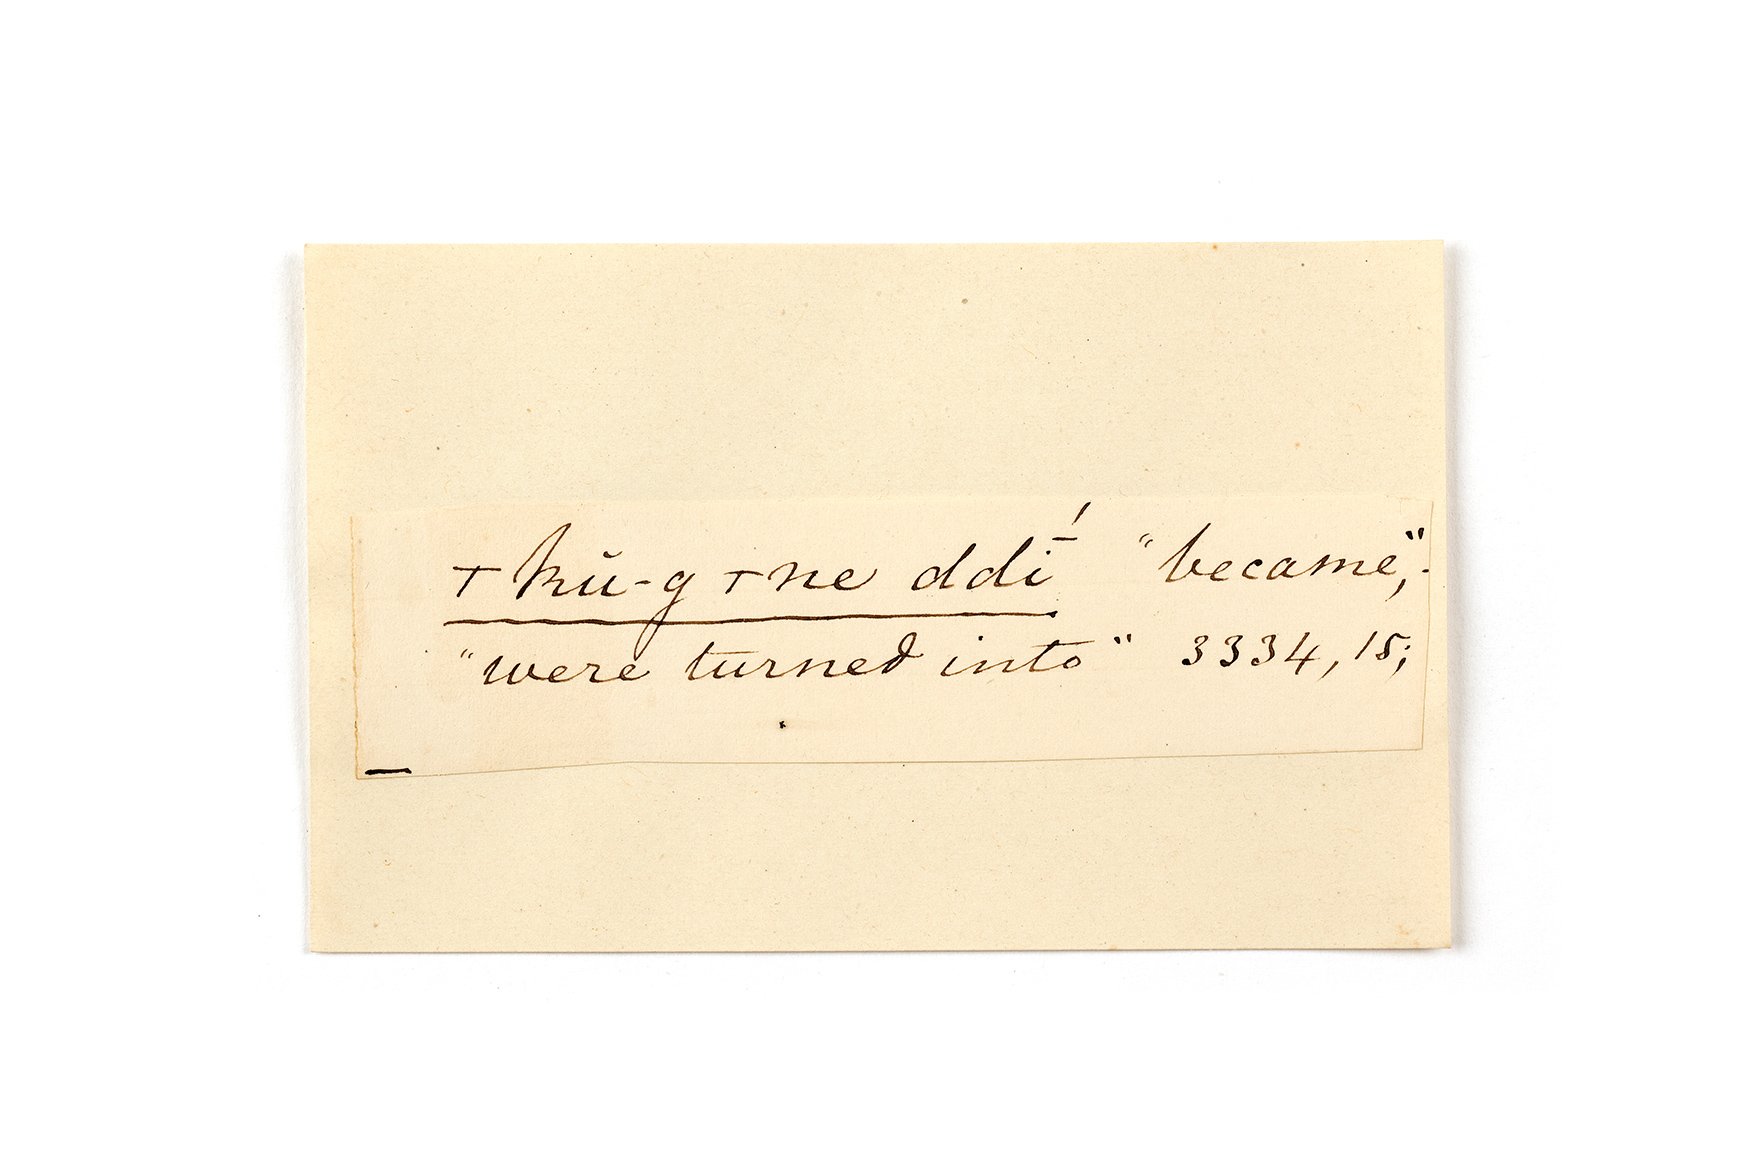 ⊤kŭ-g⊤ne ddī́ "became,"
"were turned into" 3334, 15;